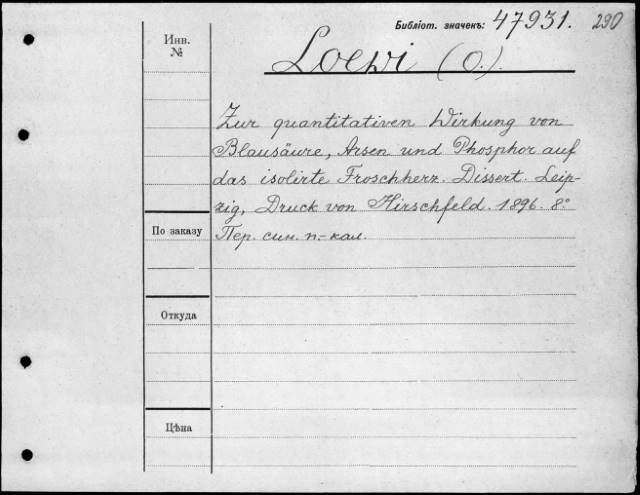 Библіот. значекъ: 47931. 290
Инв.
№
Loewi (O.).
Zur quantitativen Wirkung von
Blausäure, Arsen und Phosphor auf
das isolirte Froschherz. Dissert. Leip-
zig, Druck von Hirschfeld. 1896. 8.°
По заказу
Пер. син. п.-кал.
Откуда
Цѣна